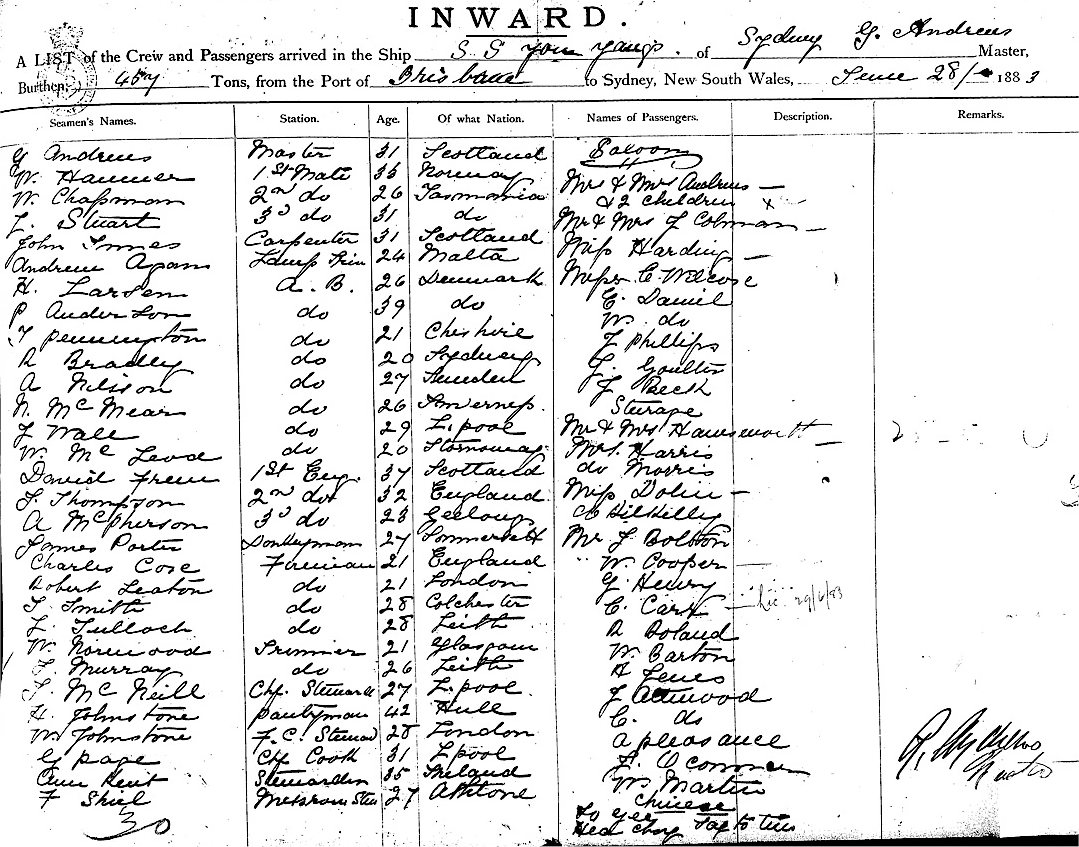 INWARD.
A LIST of the Crew and Passengers arrived in the Ship S. S. You Yangs. of Sydney G. Andrews Master,
Burthen, 457 Tons, from the Port of Brisbane to Sydney, New South Wales, June 28/ 1883
Seamen's Names. Station. Age. Of what Nation. Names of Passengers. Description. Remarks.
G Andrews Master 31 Scotland Saloon
W. Hammer 1st Mate 35 Norway Mr & Mrs Andrews —
W. Chapman 2nd do 26 Tasmania & 2 Children x
L. Stuart 3d do 31 do Mr & Mrs J Colman —
John Innes Carpenter 31 Scotland Miss Harding —
Andrew Apam Lamp Trim 24 Malta Messrs C. Welcose
H. Larsen A. B. 26 Denmark C. Daniel
P Anderson do 39 do W. do
T Pennington do 21 Cheshire J Phillips
R Bradley do 20 Sydney J. Goulter
A Nilsson do 27 Sweden J Beck
N. McMear do 26 Inverness. Steerage
J Wall do 29 L.pool Mr & Mrs —
W. McLeod do 20 Stornoway Mrs. Harris
David Frew 1st Eng. 37 Scotland do Morris
J Thompson 2nd do 32 England Miss Dolin —
A McPherson 3d do 23 Geelong
James Porter Donkeyman 27 Sommersett Mr J Bolston
Charles Cose Fireman 21 England " W. Cooper —
Robert Leaton do 21 London G Henry
T. Smith do 28 Colchester C. Carr — 29/6/83
L. Tulloch do 28 Leith R Boland
W. Norwood Trimmer 21 Glasgow W. Barton
T. Murray do 26 Leith A Jenes
J. McNeill Chf. Steward 27 L.pool. J Attwood
H. Johnstone Pantryman 42 Hull C. do
W Johnstone F. C. Steward 28 London A Pleasance
G Page Chf Cook 31 Lpool J. O'Connor
Ann Kent Stewardess 35 Ireland W. Martin
F Shiel Messroom Stew 27 Ashtone Chinese
30